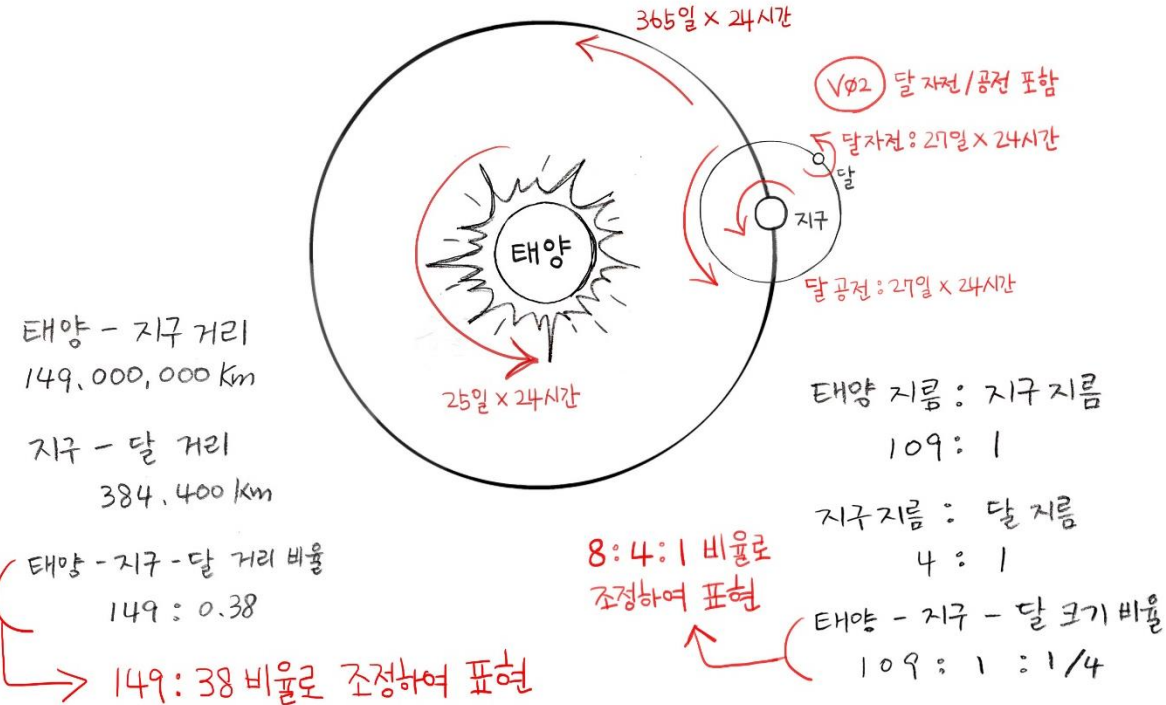 365일 × 24시간
VØ2 달 자전/공전 포함
달자전 : 27일 × 24시간
달
지구
태양
달 공전 : 27일 × 24시간
25일 × 24시간
태양 - 지구 거리
149,000,000 Km
지구 - 달 거리
384.400 km
태양 - 지구 - 달 거리 비율
149 : 0.38
149 : 38 비율로 조정하여 표현
태양 지름 : 지구 지름
109 : 1
지구 지름 : 달 지름
4 : 1
태양 - 지구 - 달 크기 비율
109 : 1 : 1/4
8 : 4 : 1 비율로
조정하여 표현